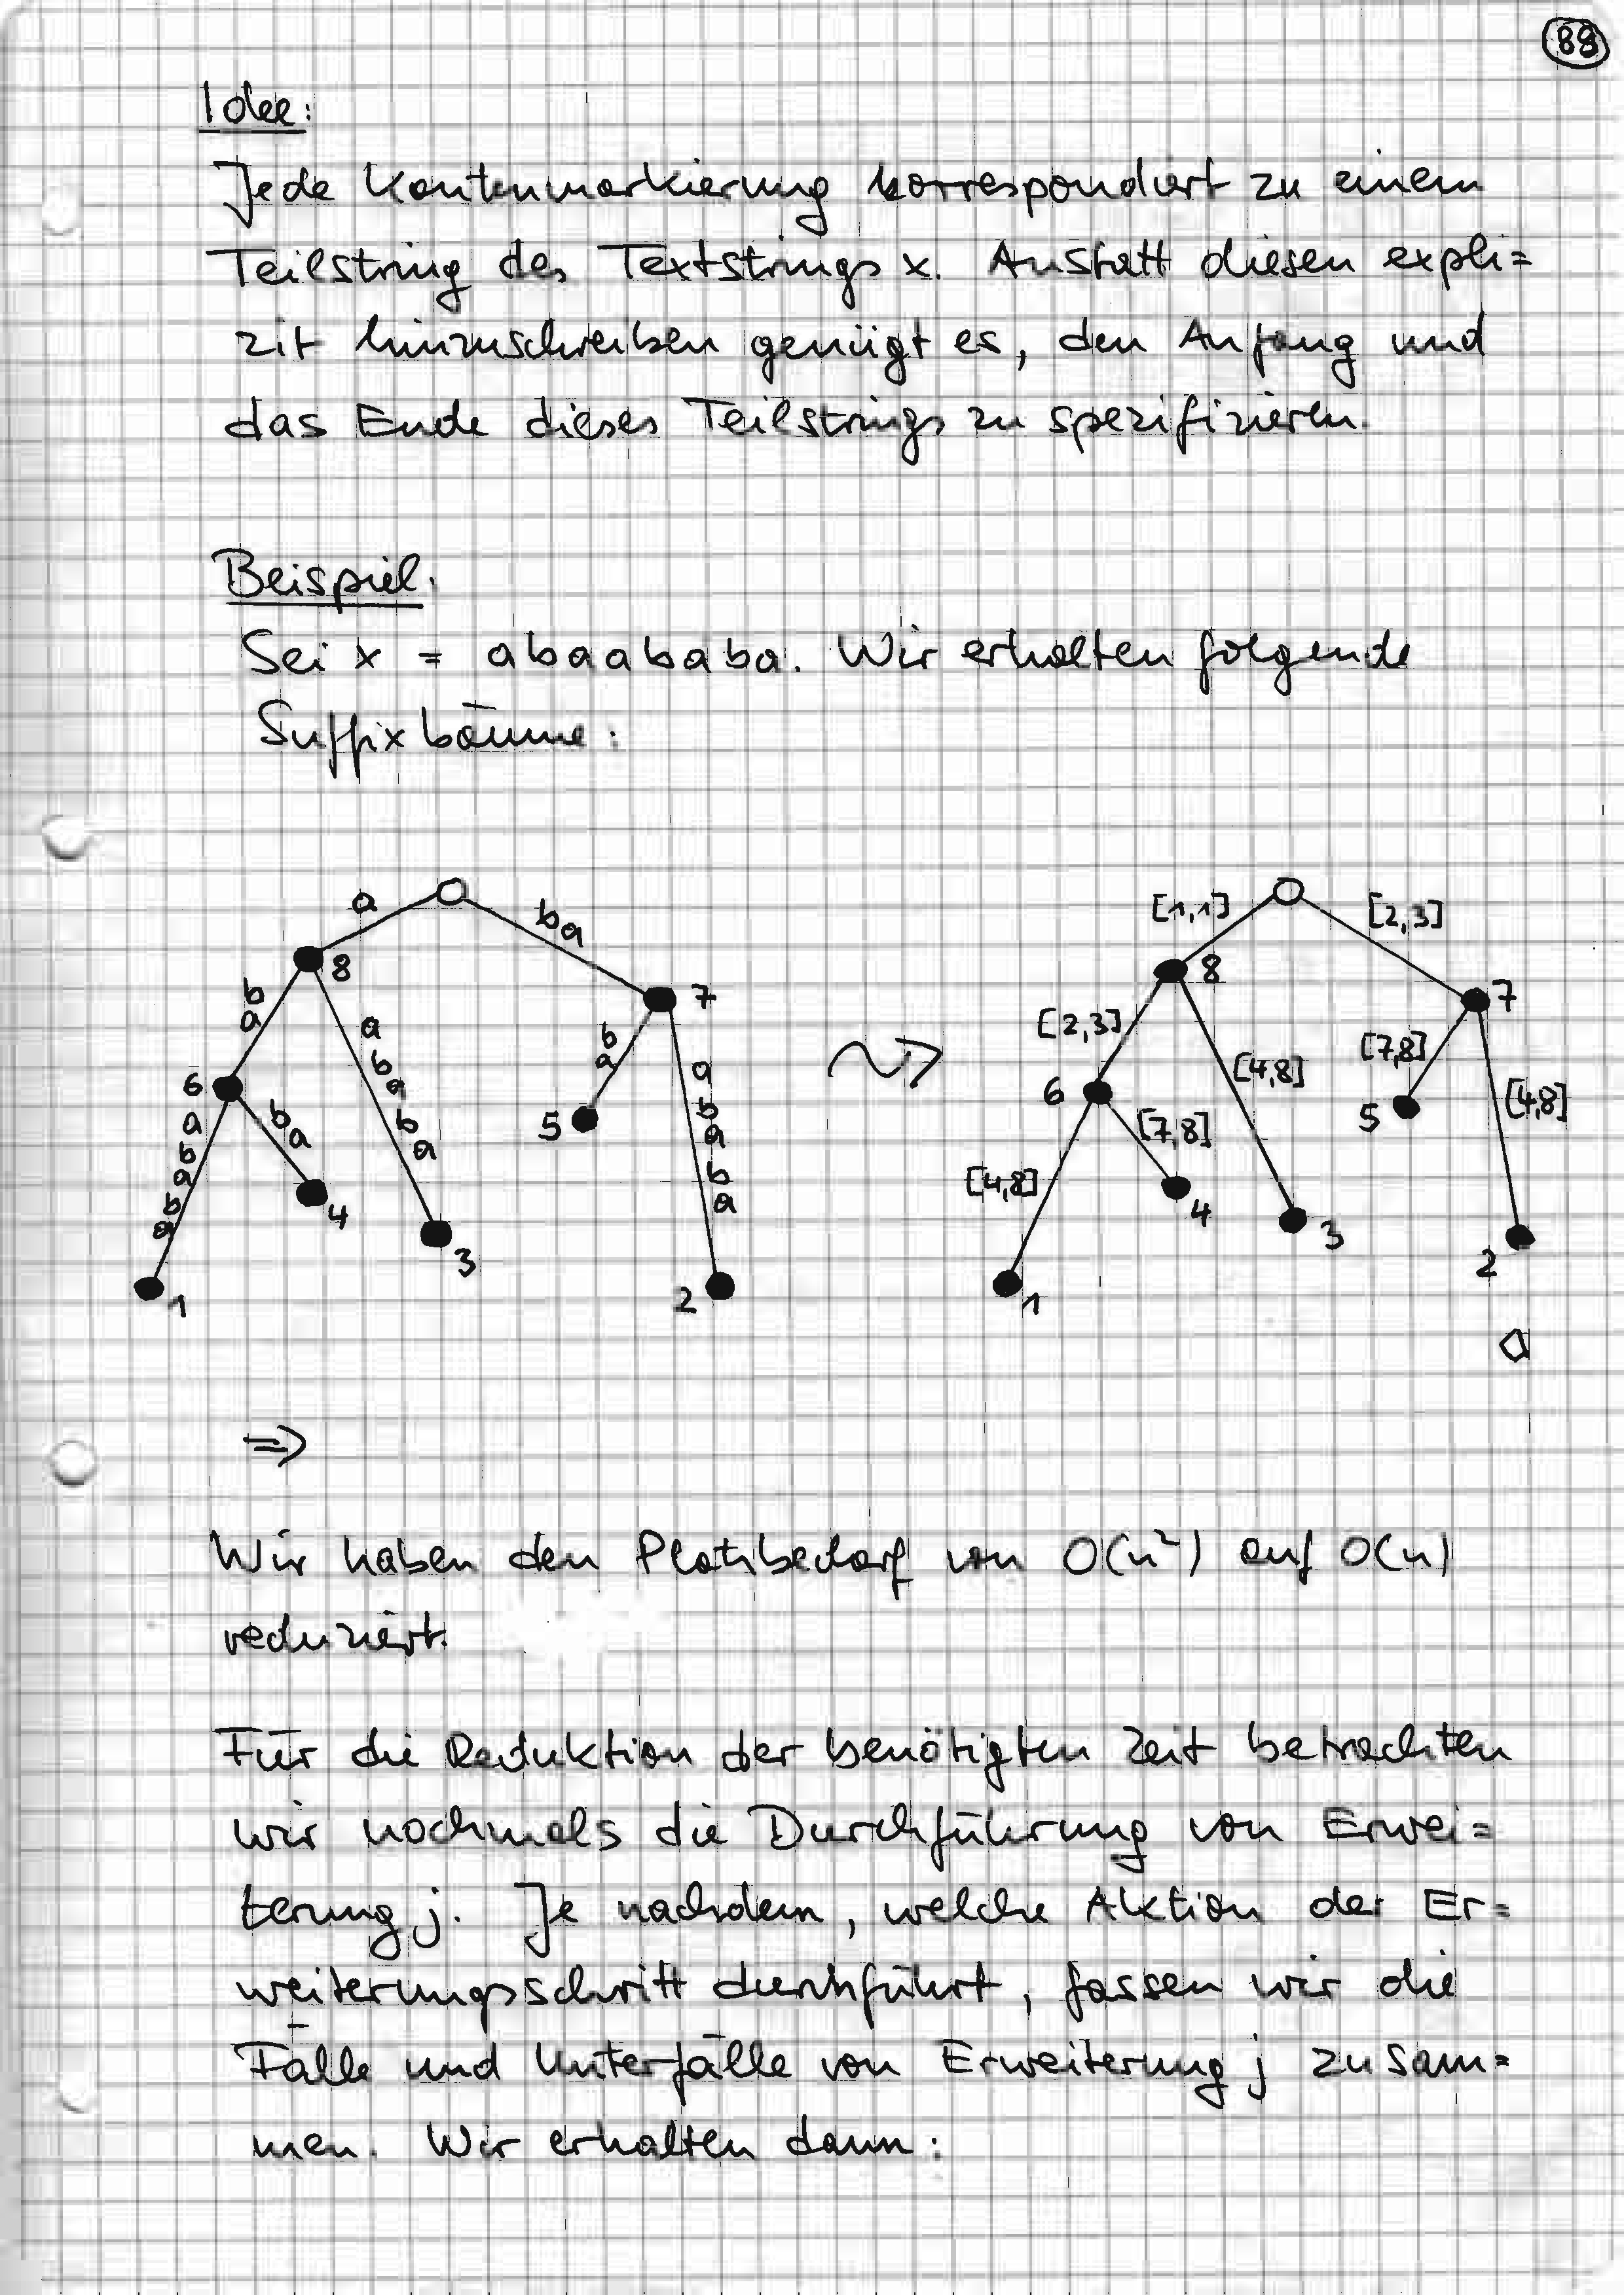 88
Idee:
Jede Kantenmarkierung korrespondiert zu einem
Teilstring des Textstrings x. Anstatt diesen expli=
zit hinzuschreiben genügt es, den Anfang und
das Ende dieses Teilstrings zu spezifizieren.
Beispiel:
Sei x = abaababa. Wir erhalten folgende
Suffixbäume:
a
ba
8
7
ba
ababa
ba
ababa
6
5
ababa
ba
4
3
1
2
[1,1]
[2,3]
8
7
[2,3]
[4,8]
[7,8]
[4,8]
6
5
[4,8]
[7,8]
4
3
1
2
⇒
Wir haben den Platzbedarf von O(n²) auf O(n)
reduziert.
Für die Reduktion der benötigten Zeit betrachten
wir nochmals die Durchführung von Erwei=
terung j. Je nachdem, welche Aktion der Er=
weiterungsschritt durchführt, fassen wir die
Fälle und Unterfälle von Erweiterung j zusam=
men. Wir erhalten dann: